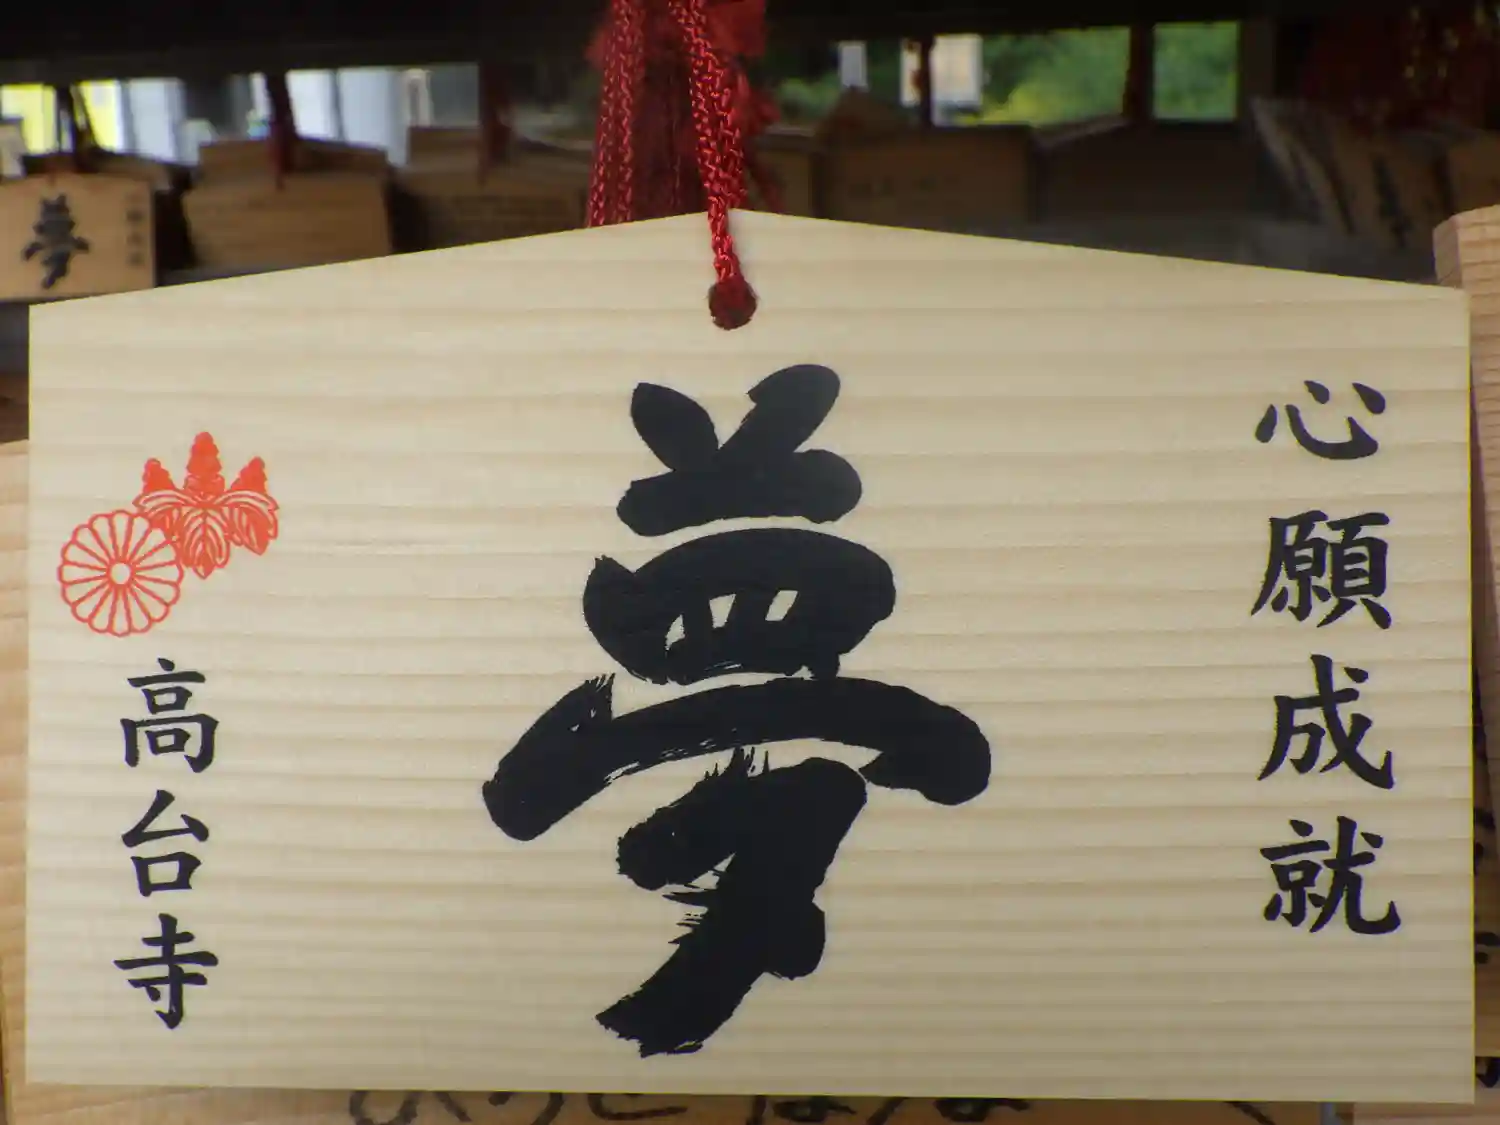 心願成就
夢
高台寺
夢